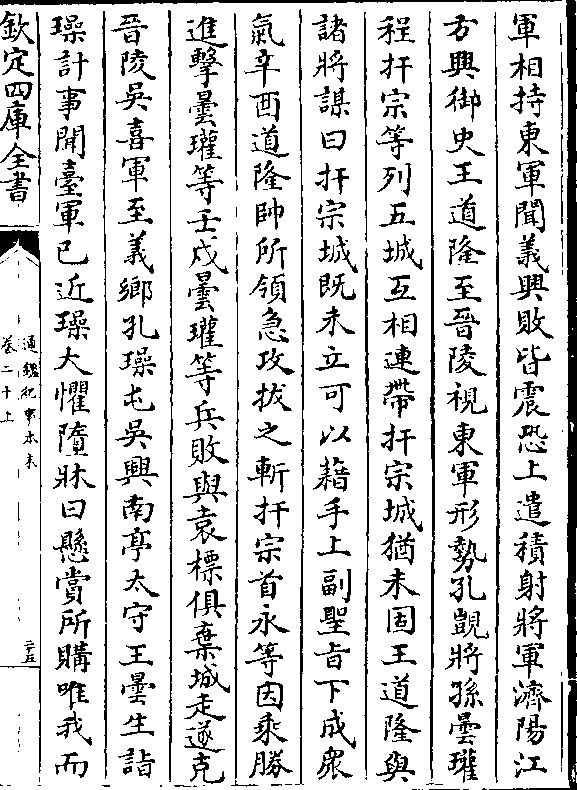 軍相持東軍聞義興敗皆震恐上遣積射將軍濟陽江
方興御史王道隆至晉陵視東軍形勢孔覬將孫曇瓘
程扞宗等列五城互相連帶扞宗城猶未固王道隆與
諸將謀曰扞宗城既未立可以藉手上副聖旨下成衆
氣辛酉道隆帥所領急攻拔之斬扞宗首永等因乘勝
進擊曇瓘等壬戌曇瓘等兵敗與袁標俱棄城走遂克
晉陵吳喜軍至義鄉孔璪屯吳興南亭太守王曇生詣
璪計事聞臺軍已近璪大懼墮牀曰懸賞所購唯我而
欽定四庫全書
通鑑紀事本末
卷二十上
二十五